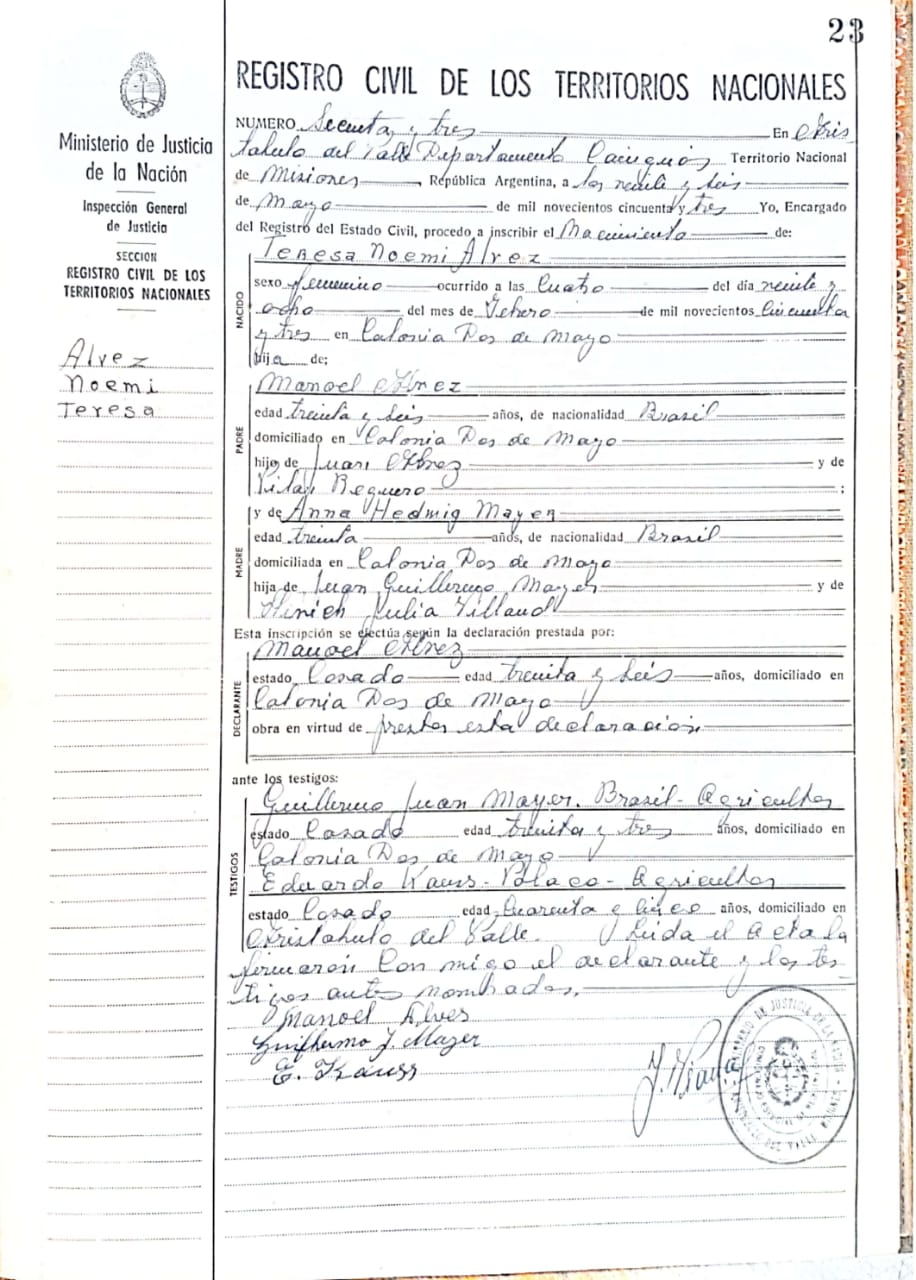 23
REGISTRO CIVIL DE LOS TERRITORIOS NACIONALES
Ministerio de Justicia
de la Nación
Inspección General
de Justicia
SECCION
REGISTRO CIVIL DE LOS
TERRITORIOS NACIONALES
Alvez
Noemi
Teresa
NUMERO Secenta y tres En Aris
tobulo del Valle Departamento Cainguás Territorio Nacional
de Misiones República Argentina, a los veinte y seis
de Mayo de mil novecientos cincuenta y tres Yo, Encargado
del Registro del Estado Civil, procedo a inscribir el Nacimiento de:
NACIDO
Teresa Noemi Alvez
sexo femenino ocurrido a las Cuatro del día veinte y
ocho del mes de Febrero de mil novecientos Cincuenta
y tres en Colonia Dos de Mayo
hija de;
PADRE
Manoel Alvez
edad treinta y seis años, de nacionalidad Brasil
domiciliado en Colonia Dos de Mayo
hijo de Juan Alvez y de
Reguero ;
MADRE
y de Anna Hedwig Mayer
edad treinta años, de nacionalidad Brasil
domiciliada en Colonia Dos de Mayo
hija de Juan Guillermo Mayer y de
Julia Villaud
Esta inscripción se efectúa según la declaración prestada por:
DECLARANTE
Manoel Alvez
estado Casado edad treinta y seis años, domiciliado en
Colonia Dos de Mayo
obra en virtud de prestar esta declaración
ante los testigos:
TESTIGOS
Guillermo Juan Mayer. Brasil - Agricultor
estado Casado edad treinta y tres años, domiciliado en
Colonia Dos de Mayo
Eduardo Kauss - Polaco - Agricultor
estado Casado edad Cuarenta y cinco años, domiciliado en
Aristobulo del Valle. Leida el Acta la
firmaron con migo el declarante y los tes-
tigos antes nombrados.
Manoel Alves
Guilhermo J. Mayer
E. Kauss